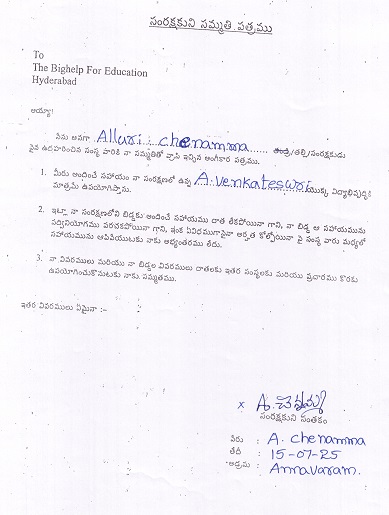 సంరక్షకుని సమ్మతి పత్రము
To
The Bighelp For Education
Hyderabad
అయ్యా!
నేను అనగా Alluri. chenamma ...... తండ్రి/తల్లి/సంరక్షకుడు
పైన ఉదహరించిన సంస్థ వారికి నా సమ్మతితో వ్రాసి ఇచ్చిన అంగీకార పత్రము.
1. మీరు అందించే సహాయం నా సంరక్షణలో ఉన్న A. Venkateswar యొక్క విద్యాభివృద్ధికి
మాత్రమే ఉపయోగిస్తాను.
2. ఇట్లా నా సంరక్షణలోని బిడ్డకు అందించే సహాయము దాత లేకపోయినా గాని, నా బిడ్డ ఆ సహాయమును
సద్వినియోగము పరచకపోయినా గాని, ఇంక ఏవిధముగానైనా అర్హత కోల్పోయినా పై సంస్థ వారు మధ్యలో
సహాయమును ఆపివేయుటకు నాకు అభ్యంతరము లేదు.
3. నా వివరములు మరియు నా బిడ్డల వివరములు దాతలకు ఇతర సంస్థలకు మరియు ప్రచారము కొరకు
ఉపయోగించుకొనుటకు నాకు సమ్మతము.
ఇతర వివరములు ఏమైనా :-
x A. చెన్నమ్మ
సంరక్షకుని సంతకం
పేరు : A. chenamma
తేదీ : 15-07-25
అడ్రసు : Annavaram.